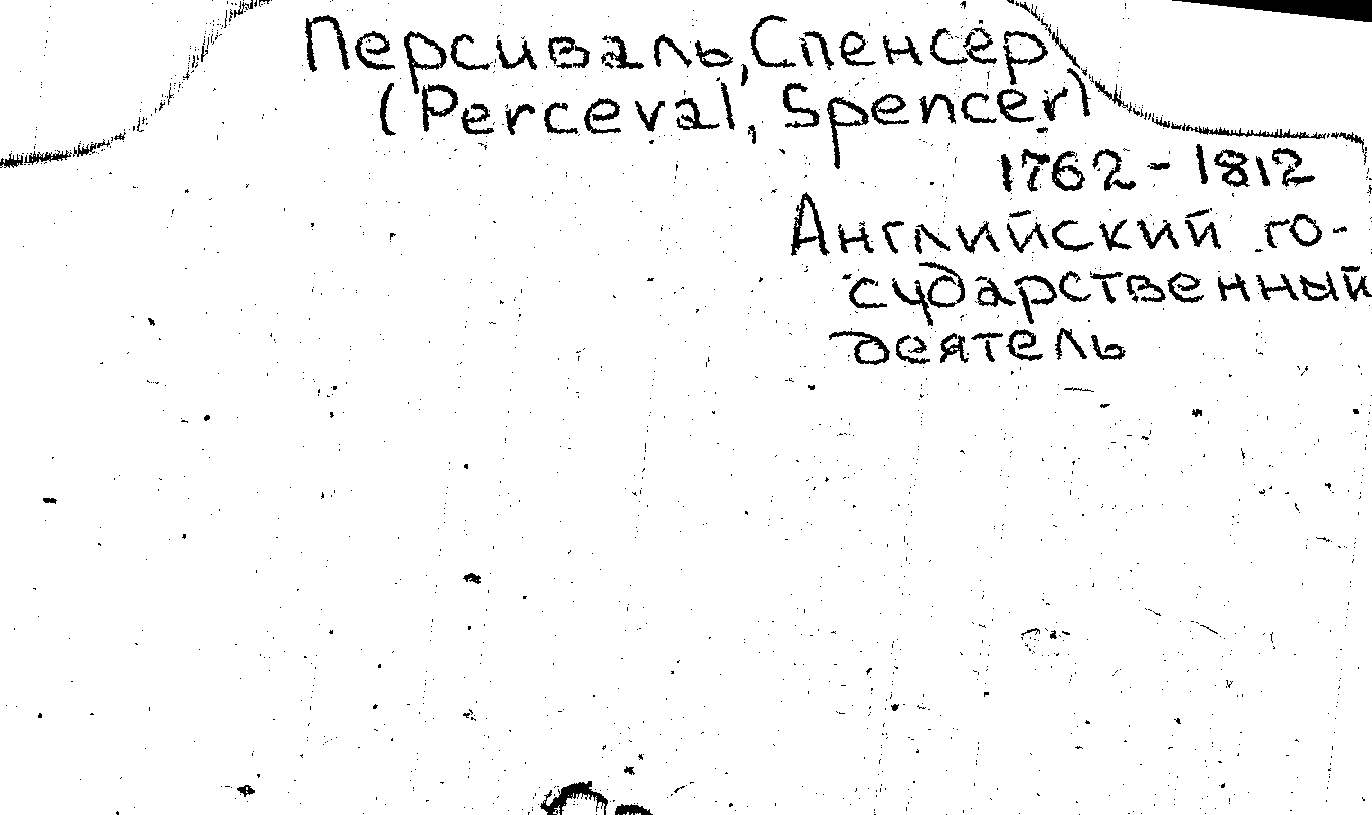 Персиваль, Спенсер
(Perceval, Spencer)
1762 - 1812
Английский го-
сударственный
деятель